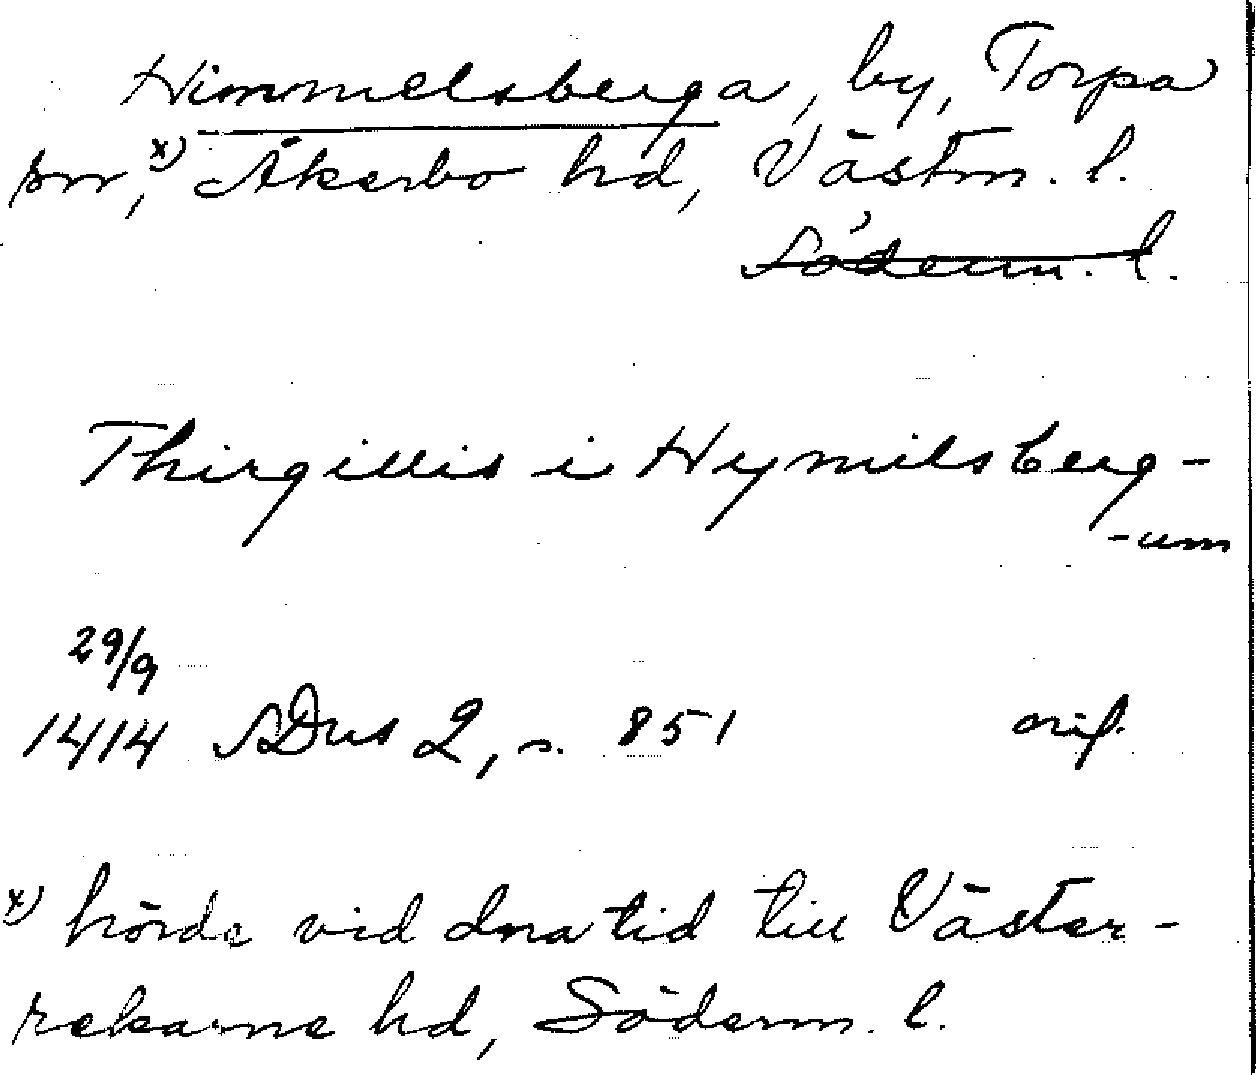 Himmelsberga, by, Torpa
sn,x) Åkerbo hd, Västm. l.
Söderm. l.
Thirgillis i Hymilsberg-
-um
29/9
1414 SDns 2, s. 851 orig.
x) hörde vid dna tid till Väster-
rekarne hd, Söderm. l.